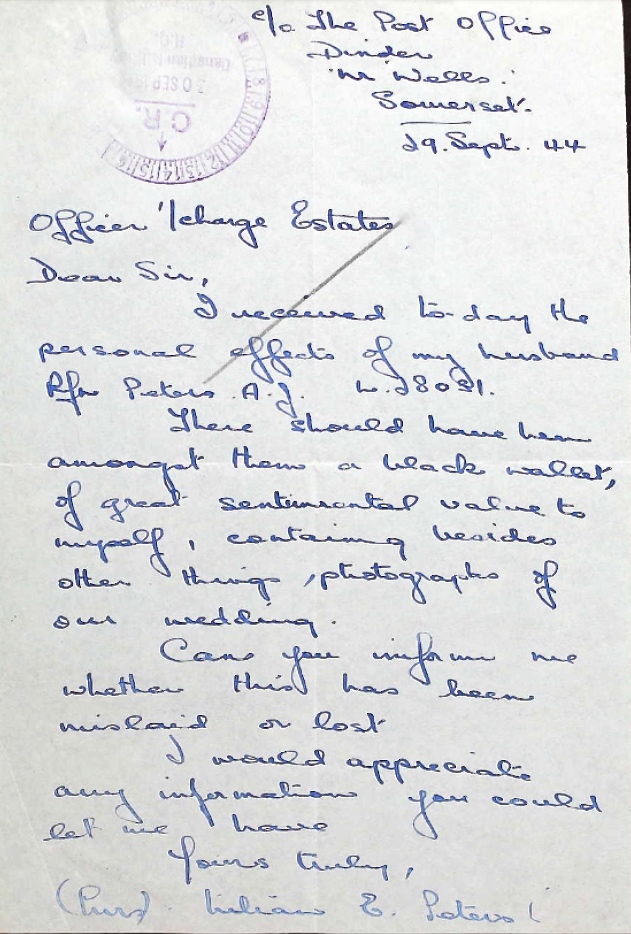 c/o The Post Office
Dinder
Nr Wells.
Somerset.
29. Sept. 44
C.R.
30 SEP 19
H.Q.
Officer i/charge Estates
Dear Sir,
I received to-day the
personal effects of my husband
Rfn Peters A.J. L.28031.
There should have been
amongst them a black wallet,
of great sentimental value to
myself, containg besides
other things, photographs of
our wedding.
Can you inform me
whether this has been
mislaid or lost
I would appreciate
any information you could
let me have
Yours truly,
(Mrs) Lilian E. Peters